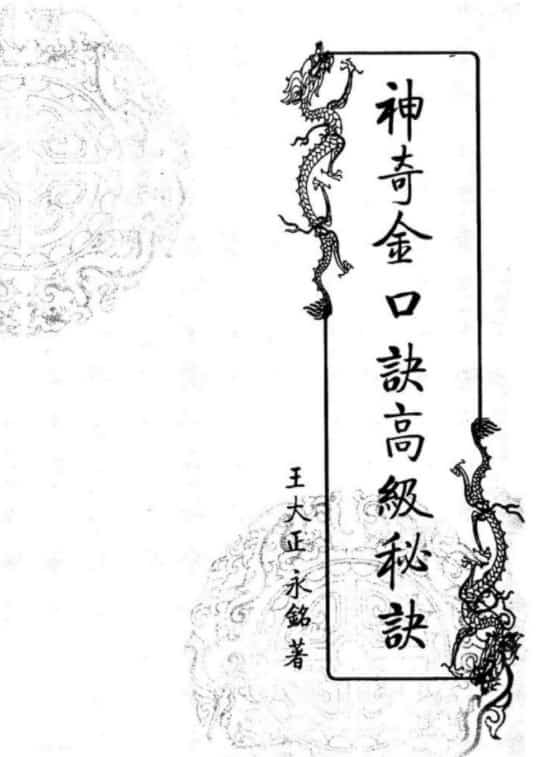 神奇金口訣高級秘訣
王大正 永銘著